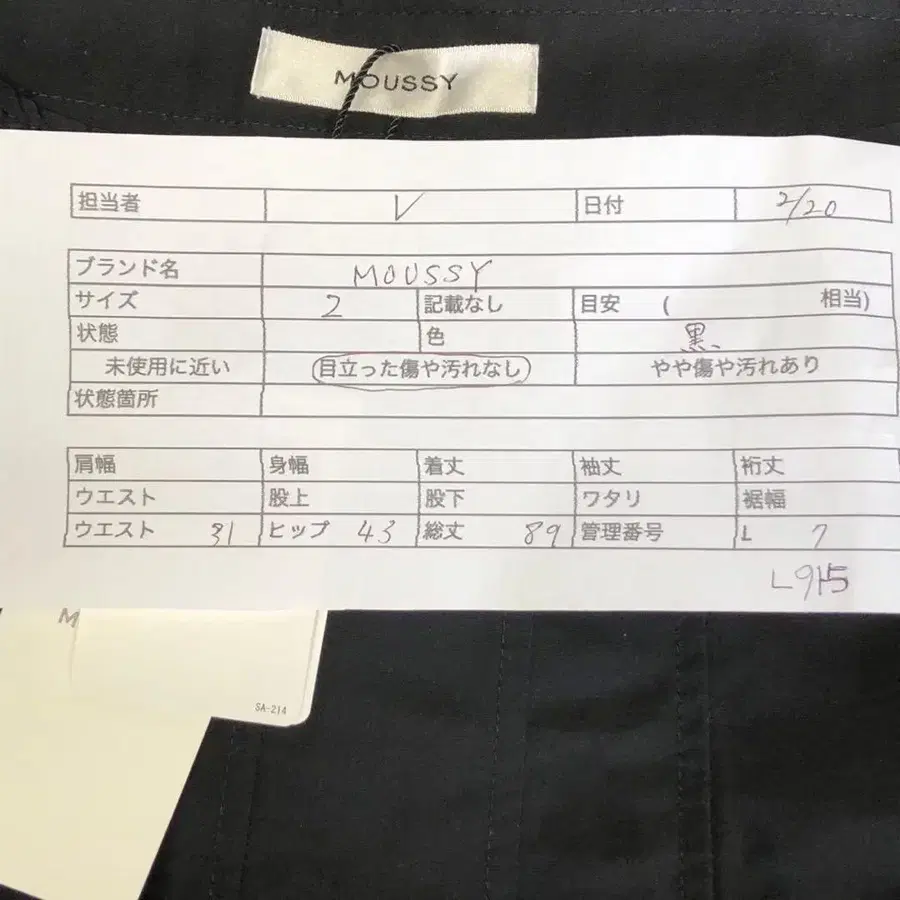 MOUSSY
担当者 V 日付 2/20
ブランド名 MOUSSY
サイズ 2 記載なし 目安 ( 相当)
状態 色 黒、
未使用に近い 目立った傷や汚れなし やや傷や汚れあり
状態箇所
肩幅 身幅 着丈 袖丈 裄丈
ウエスト 股上 股下 ワタリ 裾幅
ウエスト 31 ヒップ 43 総丈 89 管理番号 L 7
L915
M
SA-214